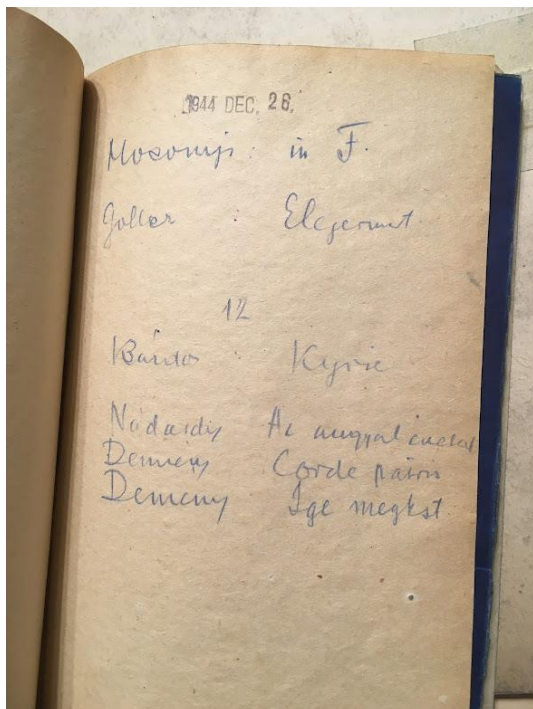 1944 DEC. 26.
Mosonyi : in F.
Goller : Elegerunt
12
Bárdos : Kyrie
Nádasdy Az angyal énekel
Demény Corde patris
Demény Ige megtest.